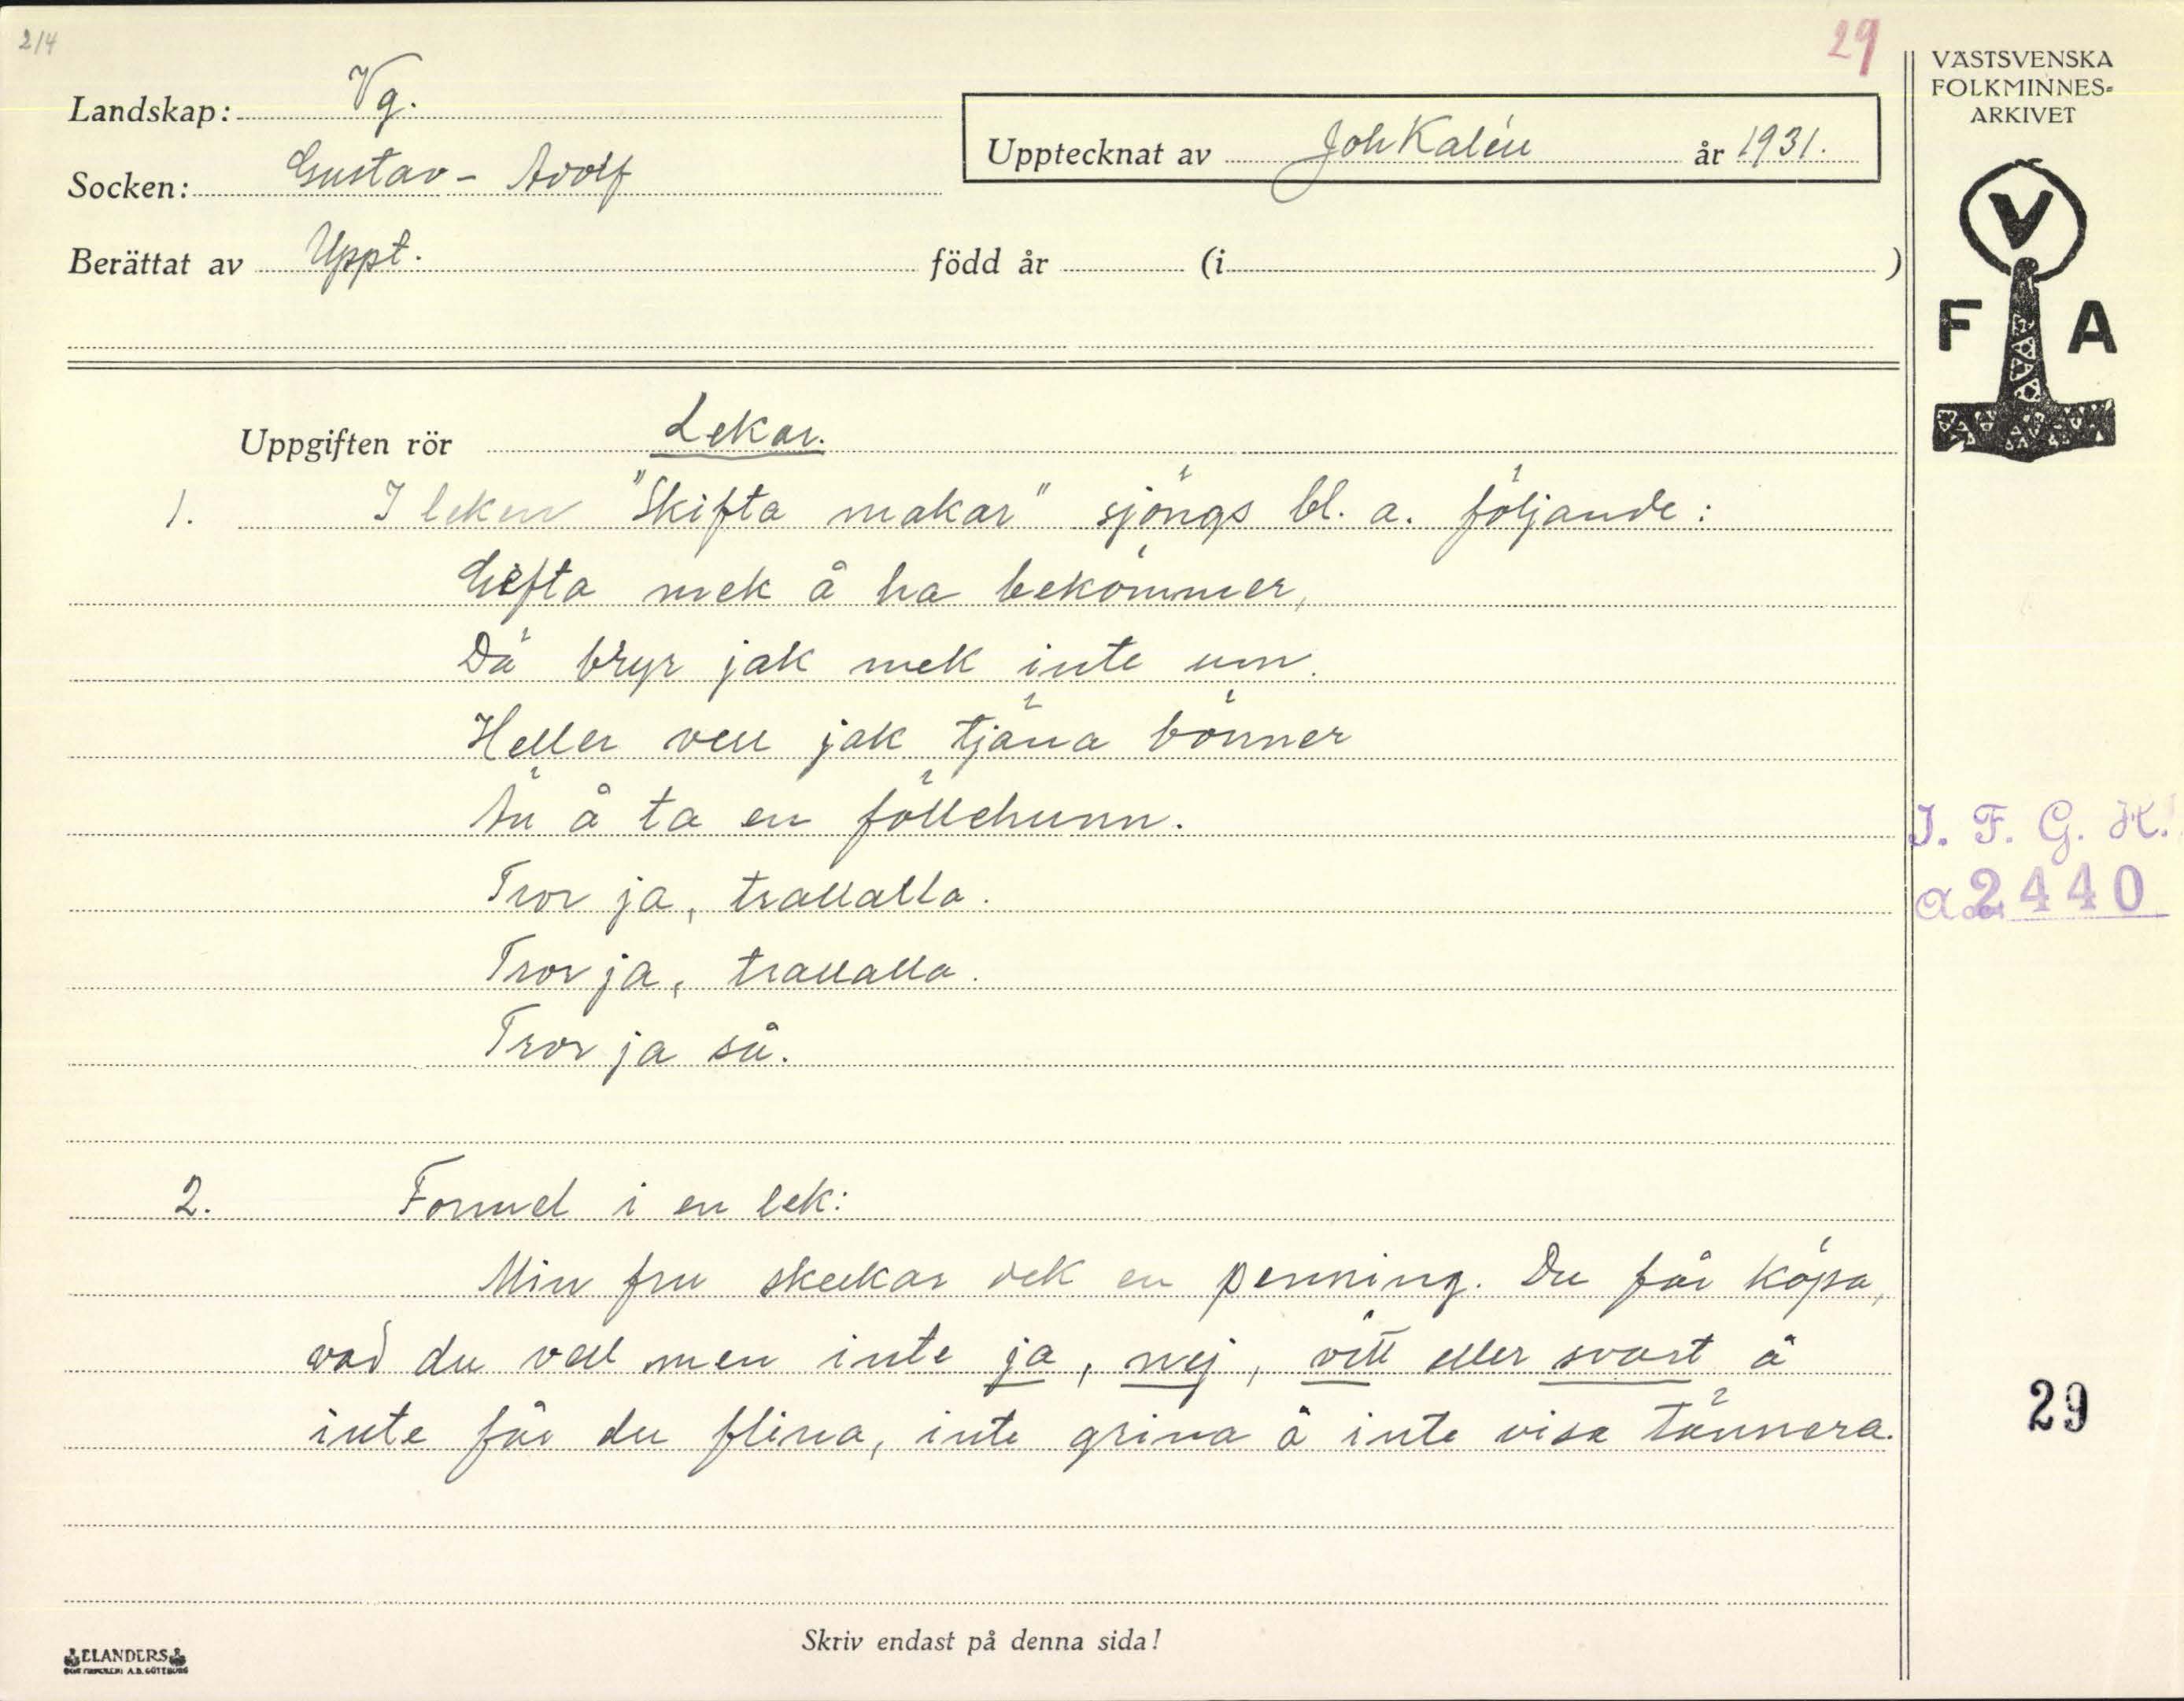 2/4
29
VÄSTSVENSKA
FOLKMINNES=
ARKIVET
Landskap: Vg.
Upptecknat av Joh Kalén år 1931.
Socken: Gustav-Adolf
Berättat av Uppt. född år (i )
V
F A
Uppgiften rör Lekar.
1. I leken "Skifta makar" sjöngs bl. a. följande:
Gifta mek å ha bekömmer,
Dä bryr jak mek inte um.
Heller vell jak tjäna bönner
Än å ta en föllehunn.
Tror ja, trallalla.
Tror ja, trallalla.
Tror ja så.
I. F. G. H.
a 2440
2. Formel i en lek:
Min fru skekkar dek en penning. Du får köpa,
vad du vell men inte ja, nej, vitt eller svart å
inte får du flina, inte grina å inte visa tännera.
29
Skriv endast på denna sida!
ELANDERS
BOKTRYCKERI A.B. GÖTEBORG